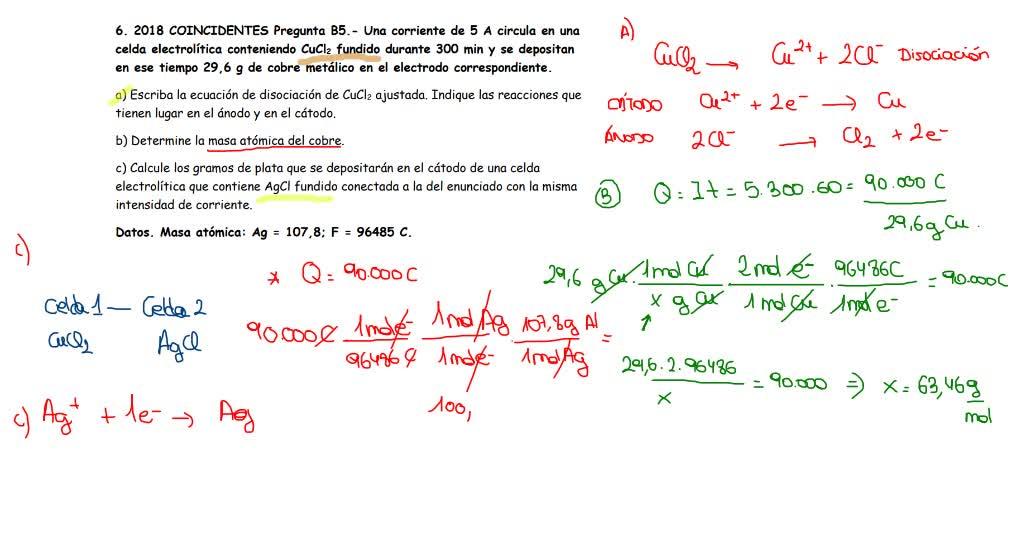 6. 2018 COINCIDENTES Pregunta B5.- Una corriente de 5 A circula en una
celda electrolítica conteniendo CuCl₂ fundido durante 300 min y se depositan
en ese tiempo 29,6 g de cobre metálico en el electrodo correspondiente.
a) Escriba la ecuación de disociación de CuCl₂ ajustada. Indique las reacciones que
tienen lugar en el ánodo y en el cátodo.
b) Determine la masa atómica del cobre.
c) Calcule los gramos de plata que se depositarán en el cátodo de una celda
electrolítica que contiene AgCl fundido conectada a la del enunciado con la misma
intensidad de corriente.
Datos. Masa atómica: Ag = 107,8; F = 96485 C.
A)
CuCl₂ → Cu²⁺ + 2Cl⁻ Disociación
CÁTODO Cu²⁺ + 2e⁻ → Cu
ÁNODO 2Cl⁻ → Cl₂ + 2e⁻
B) Q = I t = 5.300.60 = 90.000 C
29,6 g Cu.
29,6 g Cu . 1mol Cu / x g Cu . 2mol e⁻ / 1mol Cu . 96486C / 1mol e⁻ = 90.000C
29,6.2.96486 / x = 90.000 ⇒ x = 63,46 g/mol
c)
Celda 1 — Celda 2
CuCl₂ AgCl
* Q = 90.000C
90.000C 1mol e⁻ / 96486 C . 1mol Ag / 1mol e⁻ . 107,8g Al / 1mol Ag =
100,
c) Ag⁺ + 1e⁻ → Ag